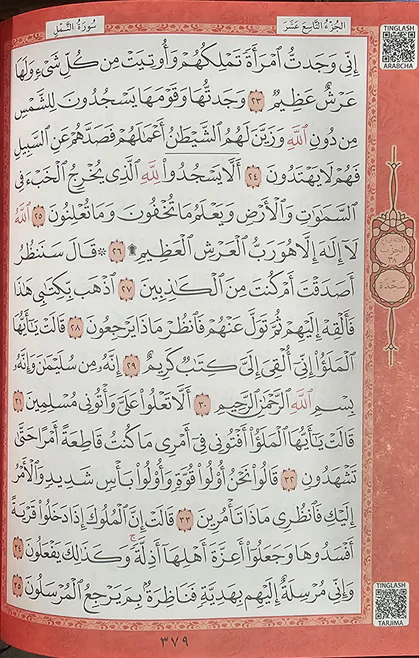 الجزء التاسع عشر
سورة النمل
TINGLASH
ARABCHA
إِنِّي وَجَدتُّ ٱمْرَأَةً تَمْلِكُهُمْ وَأُوتِيَتْ مِن كُلِّ شَىْءٍ وَلَهَا
عَرْشٌ عَظِيمٌ ٢٣ وَجَدتُّهَا وَقَوْمَهَا يَسْجُدُونَ لِلشَّمْسِ
مِن دُونِ ٱللَّهِ وَزَيَّنَ لَهُمُ ٱلشَّيْطَٰنُ أَعْمَٰلَهُمْ فَصَدَّهُمْ عَنِ ٱلسَّبِيلِ
فَهُمْ لَا يَهْتَدُونَ ٢٤ أَلَّا يَسْجُدُوا۟ لِلَّهِ ٱلَّذِى يُخْرِجُ ٱلْخَبْءَ فِى
ٱلسَّمَٰوَٰتِ وَٱلْأَرْضِ وَيَعْلَمُ مَا تُخْفُونَ وَمَا تُعْلِنُونَ ٢٥ ٱللَّهُ
لَآ إِلَٰهَ إِلَّا هُوَ رَبُّ ٱلْعَرْشِ ٱلْعَظِيمِ ۩ ٢٦ ۞ قَالَ سَنَنظُرُ
أَصَدَقْتَ أَمْ كُنتَ مِنَ ٱلْكَٰذِبِينَ ٢٧ ٱذْهَب بِّكِتَٰبِى هَٰذَا
فَأَلْقِهْ إِلَيْهِمْ ثُمَّ تَوَلَّ عَنْهُمْ فَٱنظُرْ مَاذَا يَرْجِعُونَ ٢٨ قَالَتْ يَٰٓأَيُّهَا
ٱلْمَلَؤُا۟ إِنِّىٓ أُلْقِىَ إِلَىَّ كِتَٰبٌ كَرِيمٌ ٢٩ إِنَّهُۥ مِن سُلَيْمَٰنَ وَإِنَّهُۥ
بِسْمِ ٱللَّهِ ٱلرَّحْمَٰنِ ٱلرَّحِيمِ ٣٠ أَلَّا تَعْلُوا۟ عَلَىَّ وَأْتُونِى مُسْلِمِينَ ٣١
قَالَتْ يَٰٓأَيُّهَا ٱلْمَلَؤُا۟ أَفْتُونِى فِىٓ أَمْرِى مَا كُنتُ قَاطِعَةً أَمْرًا حَتَّىٰ
تَشْهَدُونِ ٣٢ قَالُوا۟ نَحْنُ أُو۟لُوا۟ قُوَّةٍ وَأُو۟لُوا۟ بَأْسٍ شَدِيدٍ وَٱلْأَمْرُ
إِلَيْكِ فَٱنظُرِى مَاذَا تَأْمُرِينَ ٣٣ قَالَتْ إِنَّ ٱلْمُلُوكَ إِذَا دَخَلُوا۟ قَرْيَةً
أَفْسَدُوهَا وَجَعَلُوٓا۟ أَعِزَّةَ أَهْلِهَآ أَذِلَّةً ۖ وَكَذَٰلِكَ يَفْعَلُونَ ٣٤
وَإِنِّى مُرْسِلَةٌ إِلَيْهِم بِهَدِيَّةٍ فَنَاظِرَةٌۢ بِمَ يَرْجِعُ ٱلْمُرْسَلُونَ ٣٥
سجدة
٣٧٩
TINGLASH
TARJIMA